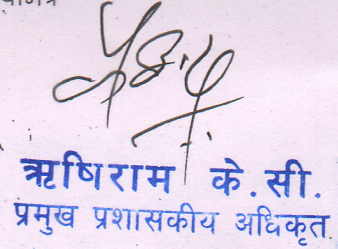 ऋषिराम के.सी.
प्रमुख प्रशासकीय अधिकृत